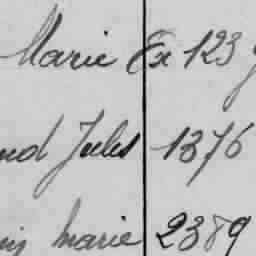 Marie Ex 123
Jules 1376
marie 2389